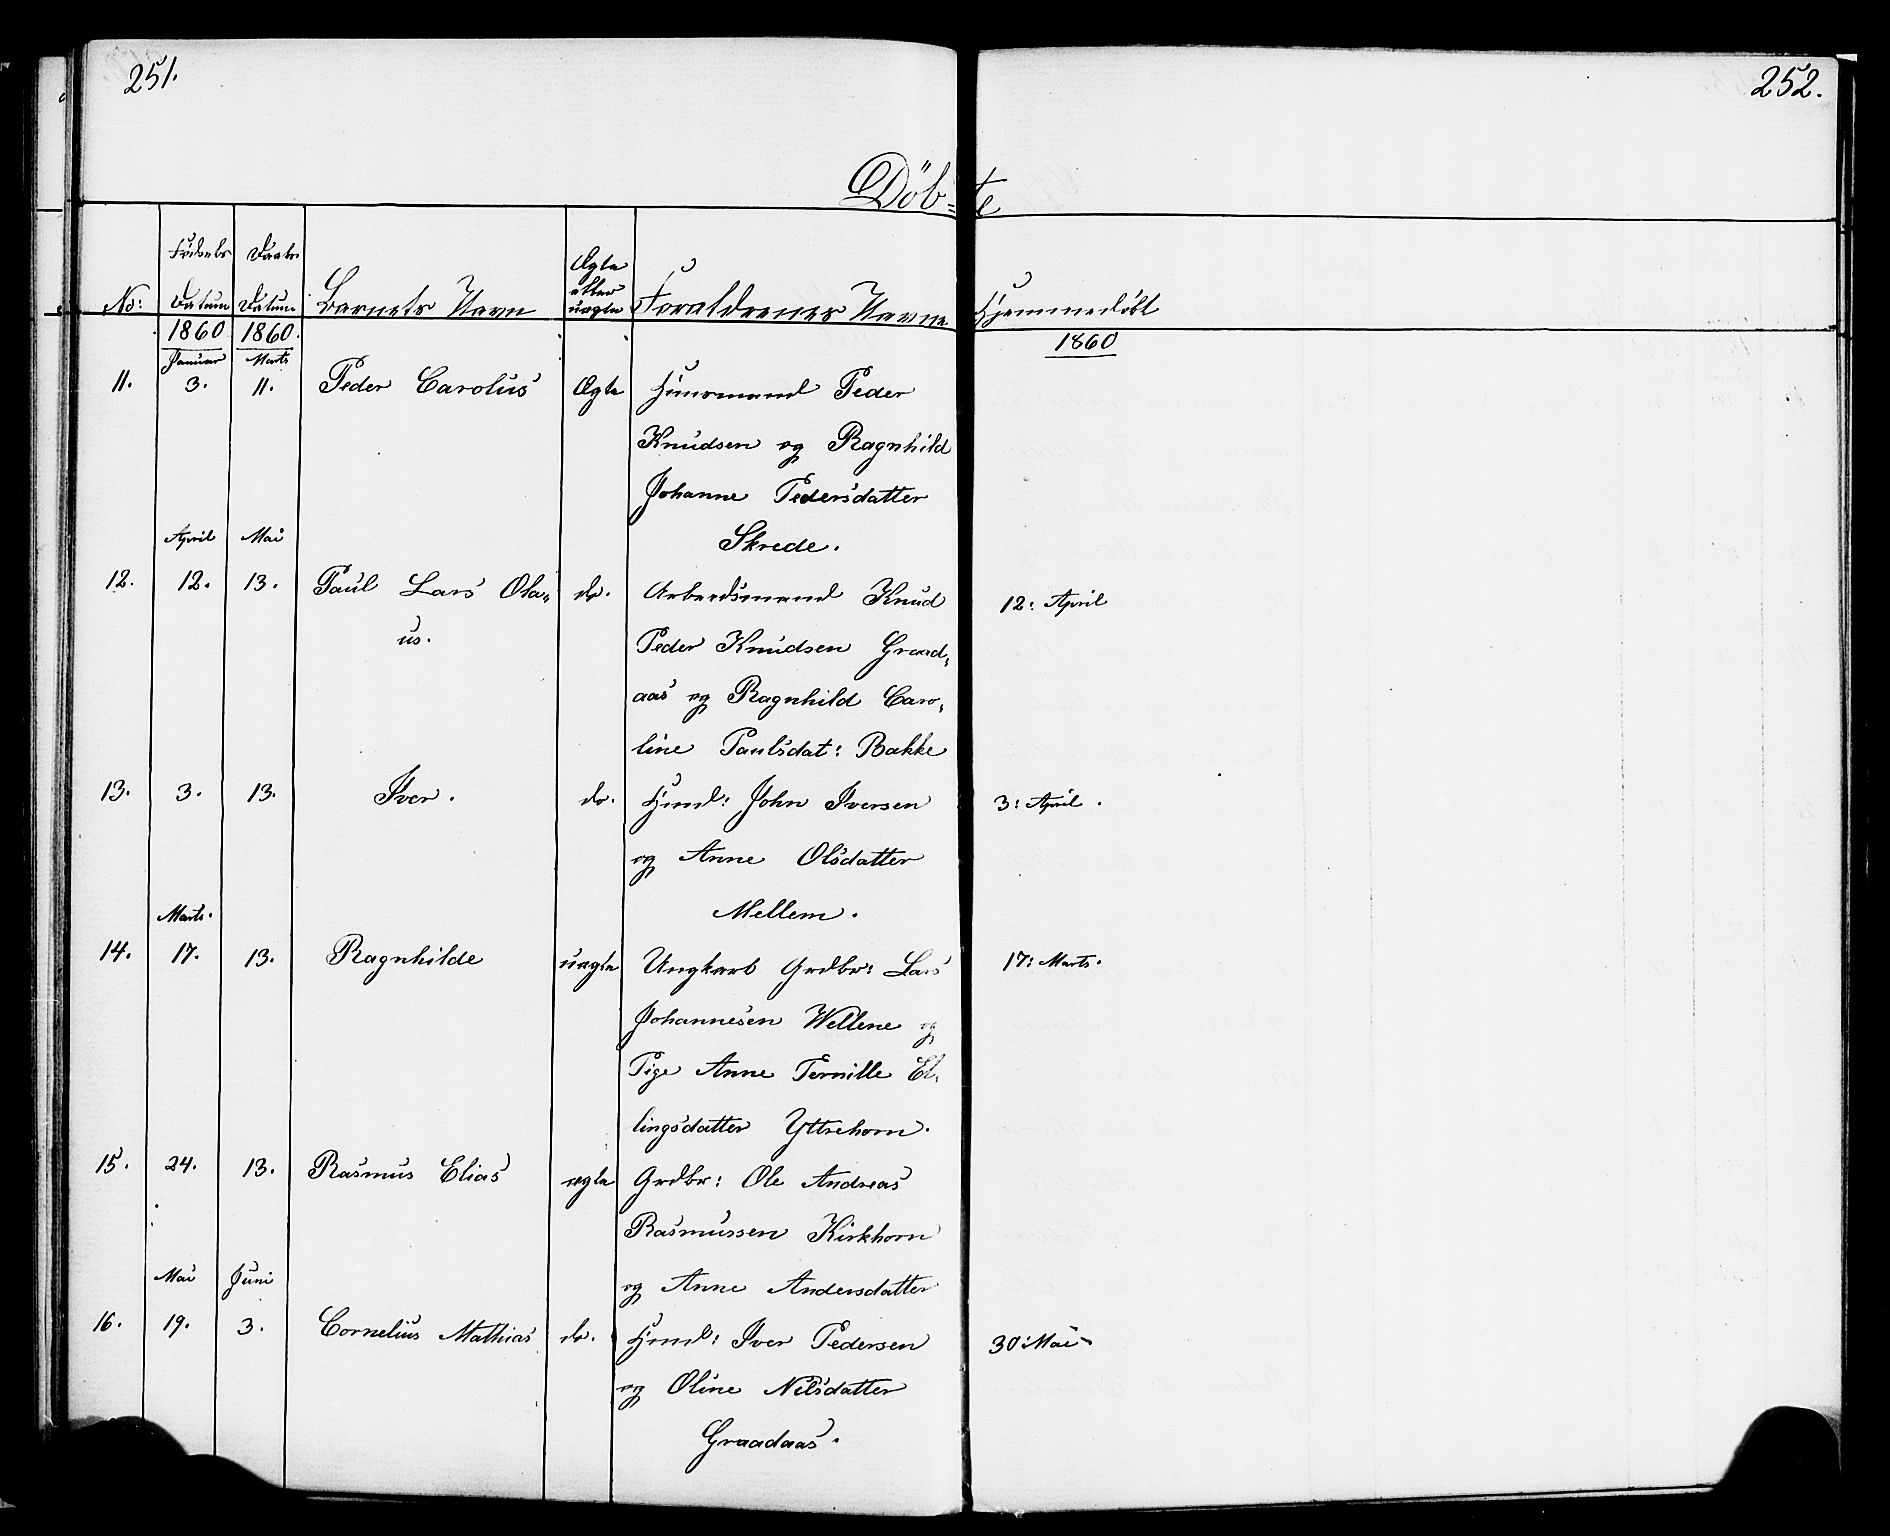 251. 252.
Döb= te
Fødsels Daabs
Ægte
eller
No: Datum Datum Barnets Navn uægte Forældrenes Navne Hjemmedöbt
1860 1860. 1860
Januar Marts
11. 3. 11. Peder Carolus Ægte Huusmand Peder
Knudsen og Ragnhild
Johanne Pedersdatter
April Mai Skrede.
12. 12. 13. Paul Lars Ola= do. Arbeidsmand Knud 12: April
us. Peder Knudsen Graad=
aas og Ragnhild Caro=
line Paulsdat: Bakke
13. 3. 13. Iver. do. Hmd: John Iversen 3: April.
og Anne Olsdatter
Marts. Mellem.
14. 17. 13. Ragnhilde uægte Ungkarl Grdbr: Lars 17: Marts.
Johannesen Wellene og
Pige Anne Pernille El=
lingsdatter Yttrehorn.
15. 24. 13. Rasmus Elias ægte Grdbr: Ole Andreas
Rasmussen Kirkhorn
Mai Juni og Anne Andersdatter
16. 19. 3. Cornelius Mathias do. Hmd: Iver Pedersen 30: Mai
og Oline Nilsdatter
Graadaas.